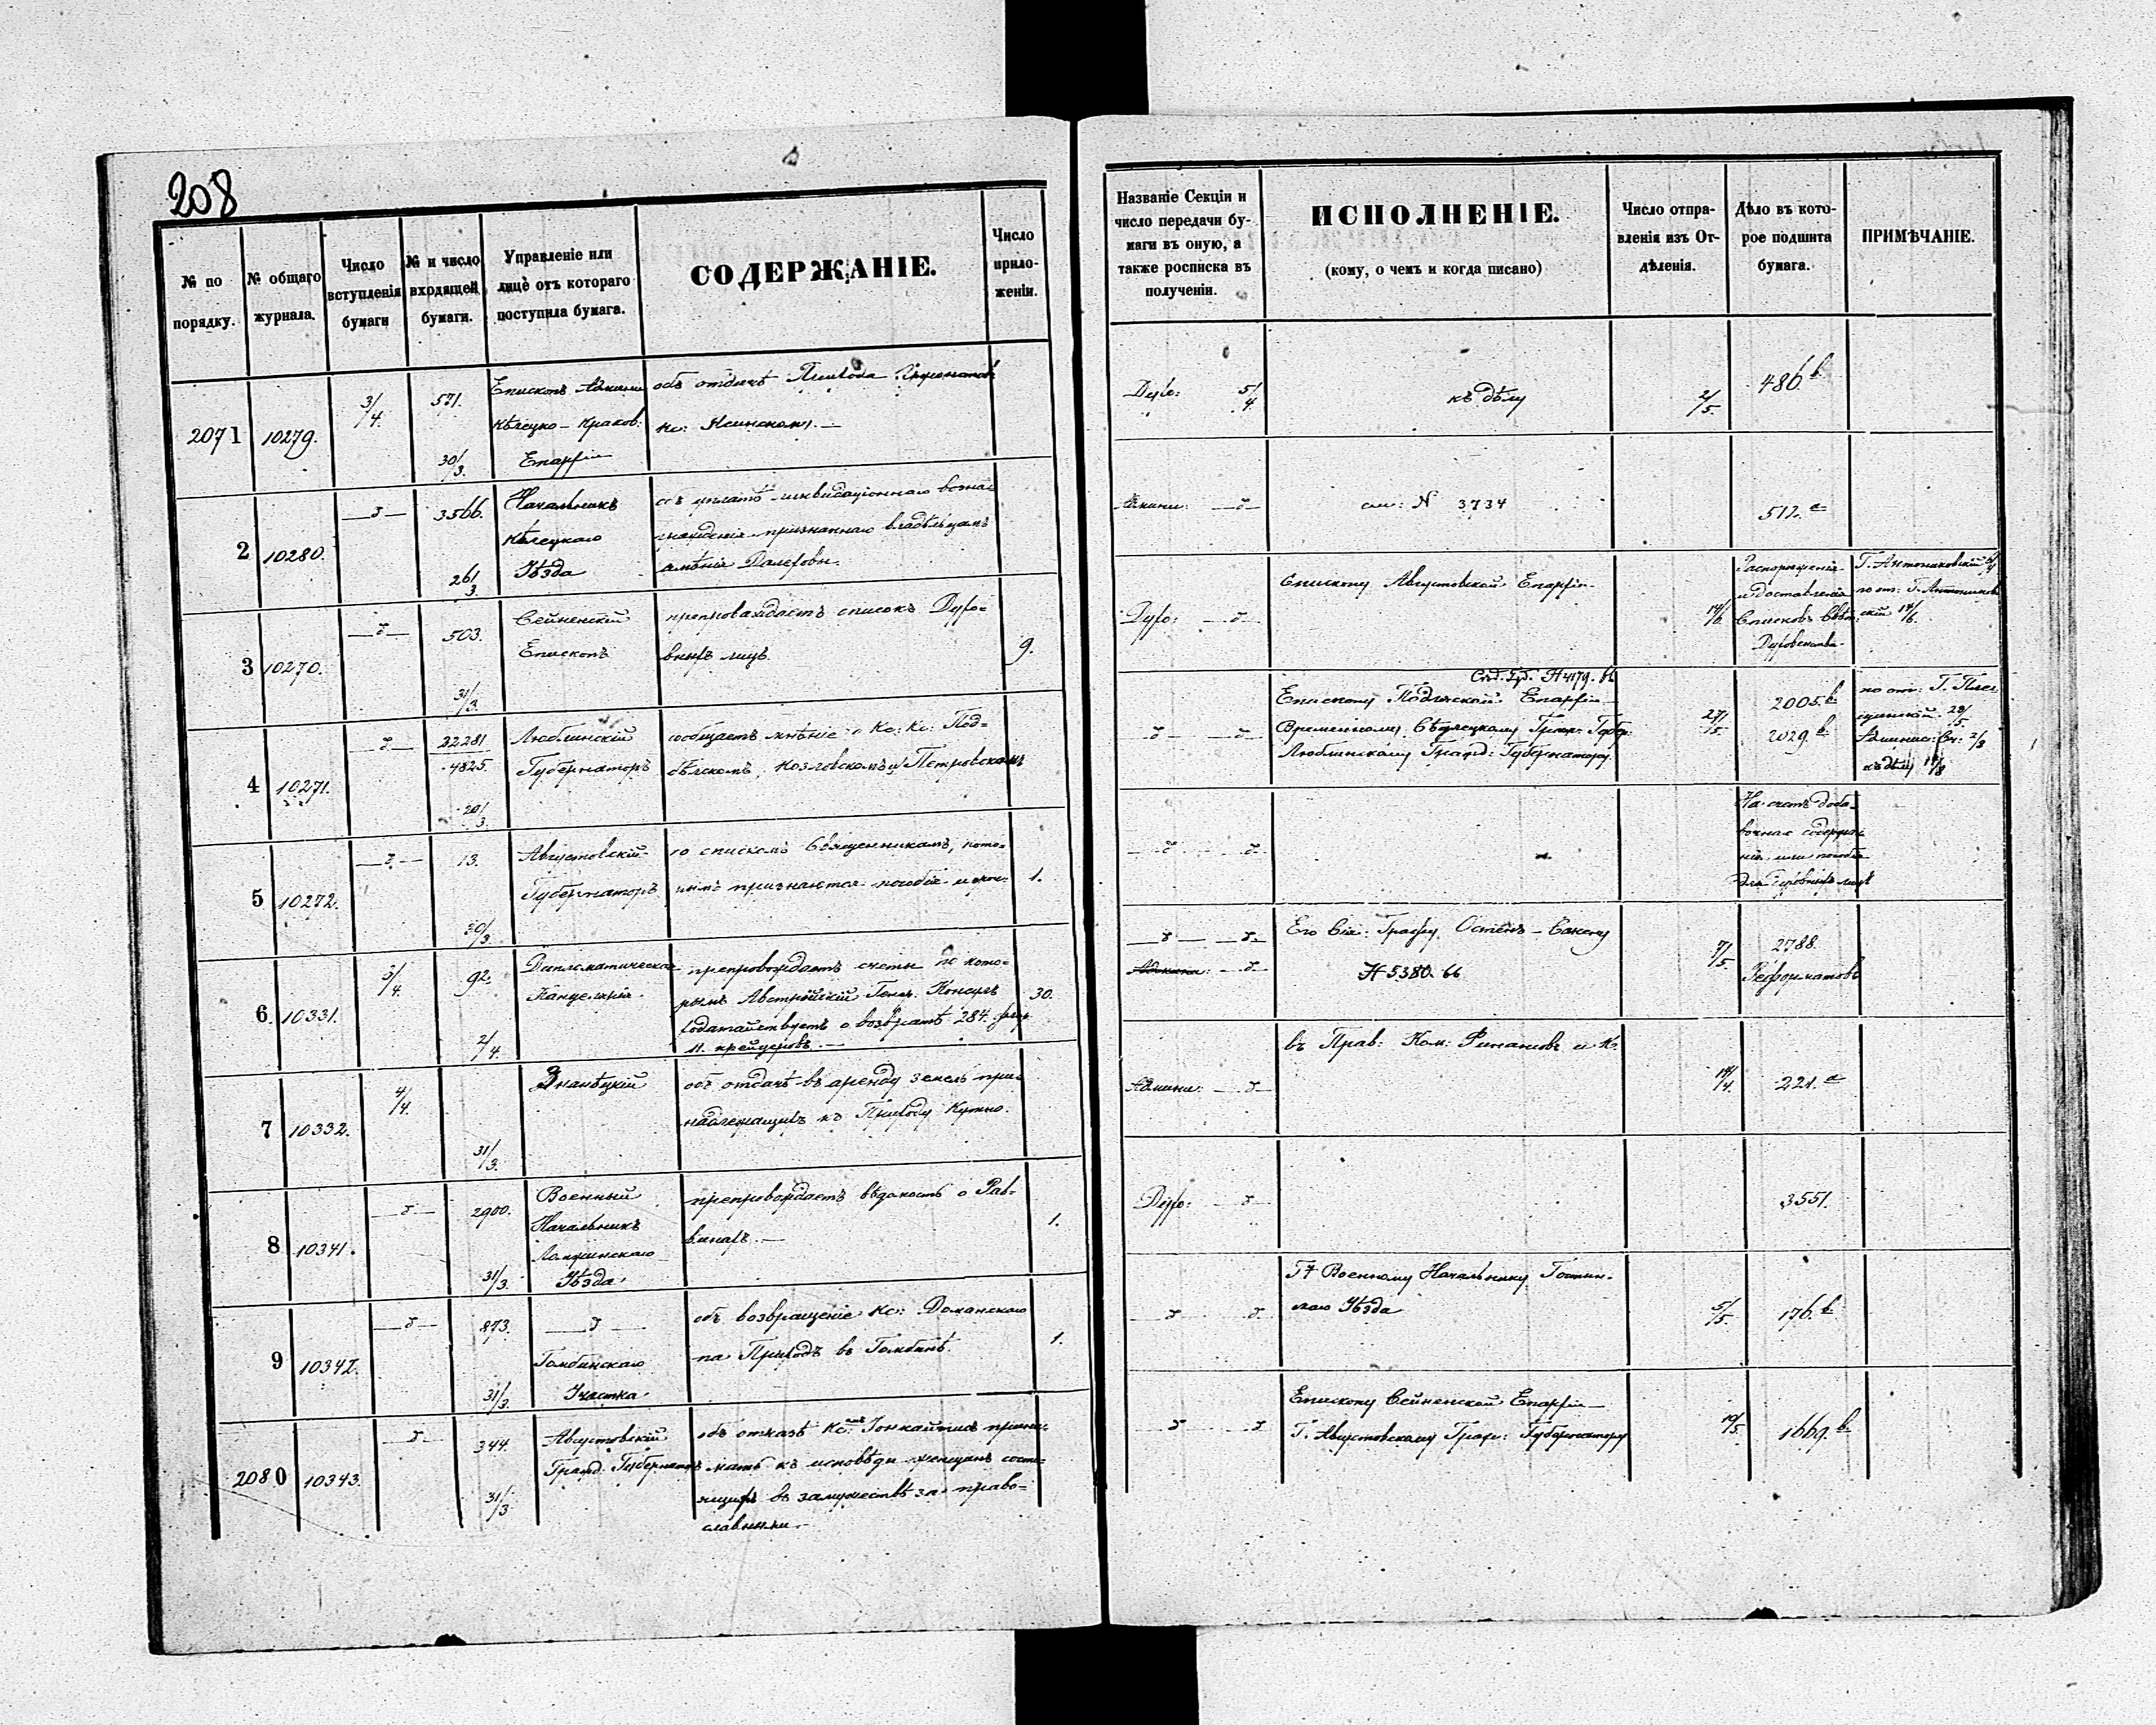 208
№ по порядку.
№ общаго журнала.
Число вступленія бумаги
№ и число входящей бумаги.
Управленіе или лицѐ отъ котораго поступила бумага.
СОДЕРЖАНІЕ.
Число приложеніи.
Названіе Секціи и число передачи бумаги въ оную, а также росписка въ полученіи.
ИСПОЛНЕНІЕ.
(кому, о чемъ и когда писано)
Число отправленія изъ Отдѣленія.
Дѣло въ которое подшита бумага.
ПРИМѢЧАНІЕ.
2071
10279.
3/4.
571.
30/3.
Епископъ
Кѣлецко-Краков:
Епархіи
объ отдачѣ Прихода
Кс:
Духо:
5/4.
къ дѣлу
2/5.
486 b.
2
10280.
3566.
26/3.
Начальникъ
Кѣлецкаго
Уѣзда
объ уплатѣ ликвидаціоннаго вознаг
гражденія признаннаго владѣльцамъ
имѣнія
см: N 3734
512. a
3
10270.
503.
31/3.
Сейненскій
Епископъ
препровождаетъ списокъ Духо=
вныхъ лицъ.
9.
Духо:
Епископу Августовской Епархіи
14/6.
Распоряженія
о доставленіи
Списковъ
Духовенства
4
10271.
22281
4825.
20/3.
Люблинскій
Губернаторъ
сообщаетъ мнѣніе о Кс: Кс: Под=
бѣлскомъ, Козловскомъ и Петровскомъ
N 4179. 66
Епископу Подляской Епархіи
Временному Сѣдлецкому Граж: Губер:
Люблинскому Гражд: Губернатору.
27/5.
2005. b
2029. b
по от: Г.
къ дѣлу
5
10272.
13.
30/3.
Августовскій
Губернаторъ
со спискомъ Священникамъ, кото=
рымъ признаются пособіе
1.
На счетъ доба=
вочнаго содержа=
нія или пособія
для Духовныхъ лицъ
6
10331.
3/4.
92.
2/4.
Дипломатическая
Канцелярія
препровождаетъ счеты по кото=
рымъ Австрійскій Генер. Консулъ
ходатайствуетъ о возвратѣ 284. флор
11. крейцеровъ.
30.
Его Сія: Графу Остенъ-Сакену
N 5380. 66
7/5.
2788.
Реформатовъ
7
10332.
4/4.
31/3.
Знанѣцкій
объ отдачѣ въ аренду земель при=
надлежащихъ къ Приходу Кутно.
Админи:
въ Прав: Ком: Финансовъ и К:
14/4.
221. a
8
10341.
2900.
31/3.
Военный
Начальникъ
Ломжинскаго
Уѣзда
препровождаетъ вѣдомость о Рав=
винахъ.
1.
Духо:
3551.
9
10342.
873.
31/3.
Гомбинскаго
Участка
объ возвращеніе Кс: Доманскаго
на Приходъ въ Гомбинѣ.
1.
Г. Военному Начальнику Гостин=
скаго Уѣзда
5/5.
176. b
2080
10343.
344.
31/3.
Августовскій
Гражд. Губернаторъ
объ отказѣ Кс: прини=
мать къ исповѣди женщинъ состо=
ящихъ въ замужествѣ за право=
славными.
Епископу Сейненской Епархіи
Г. Августовскому Граж: Губернатору
10/5.
1669. b